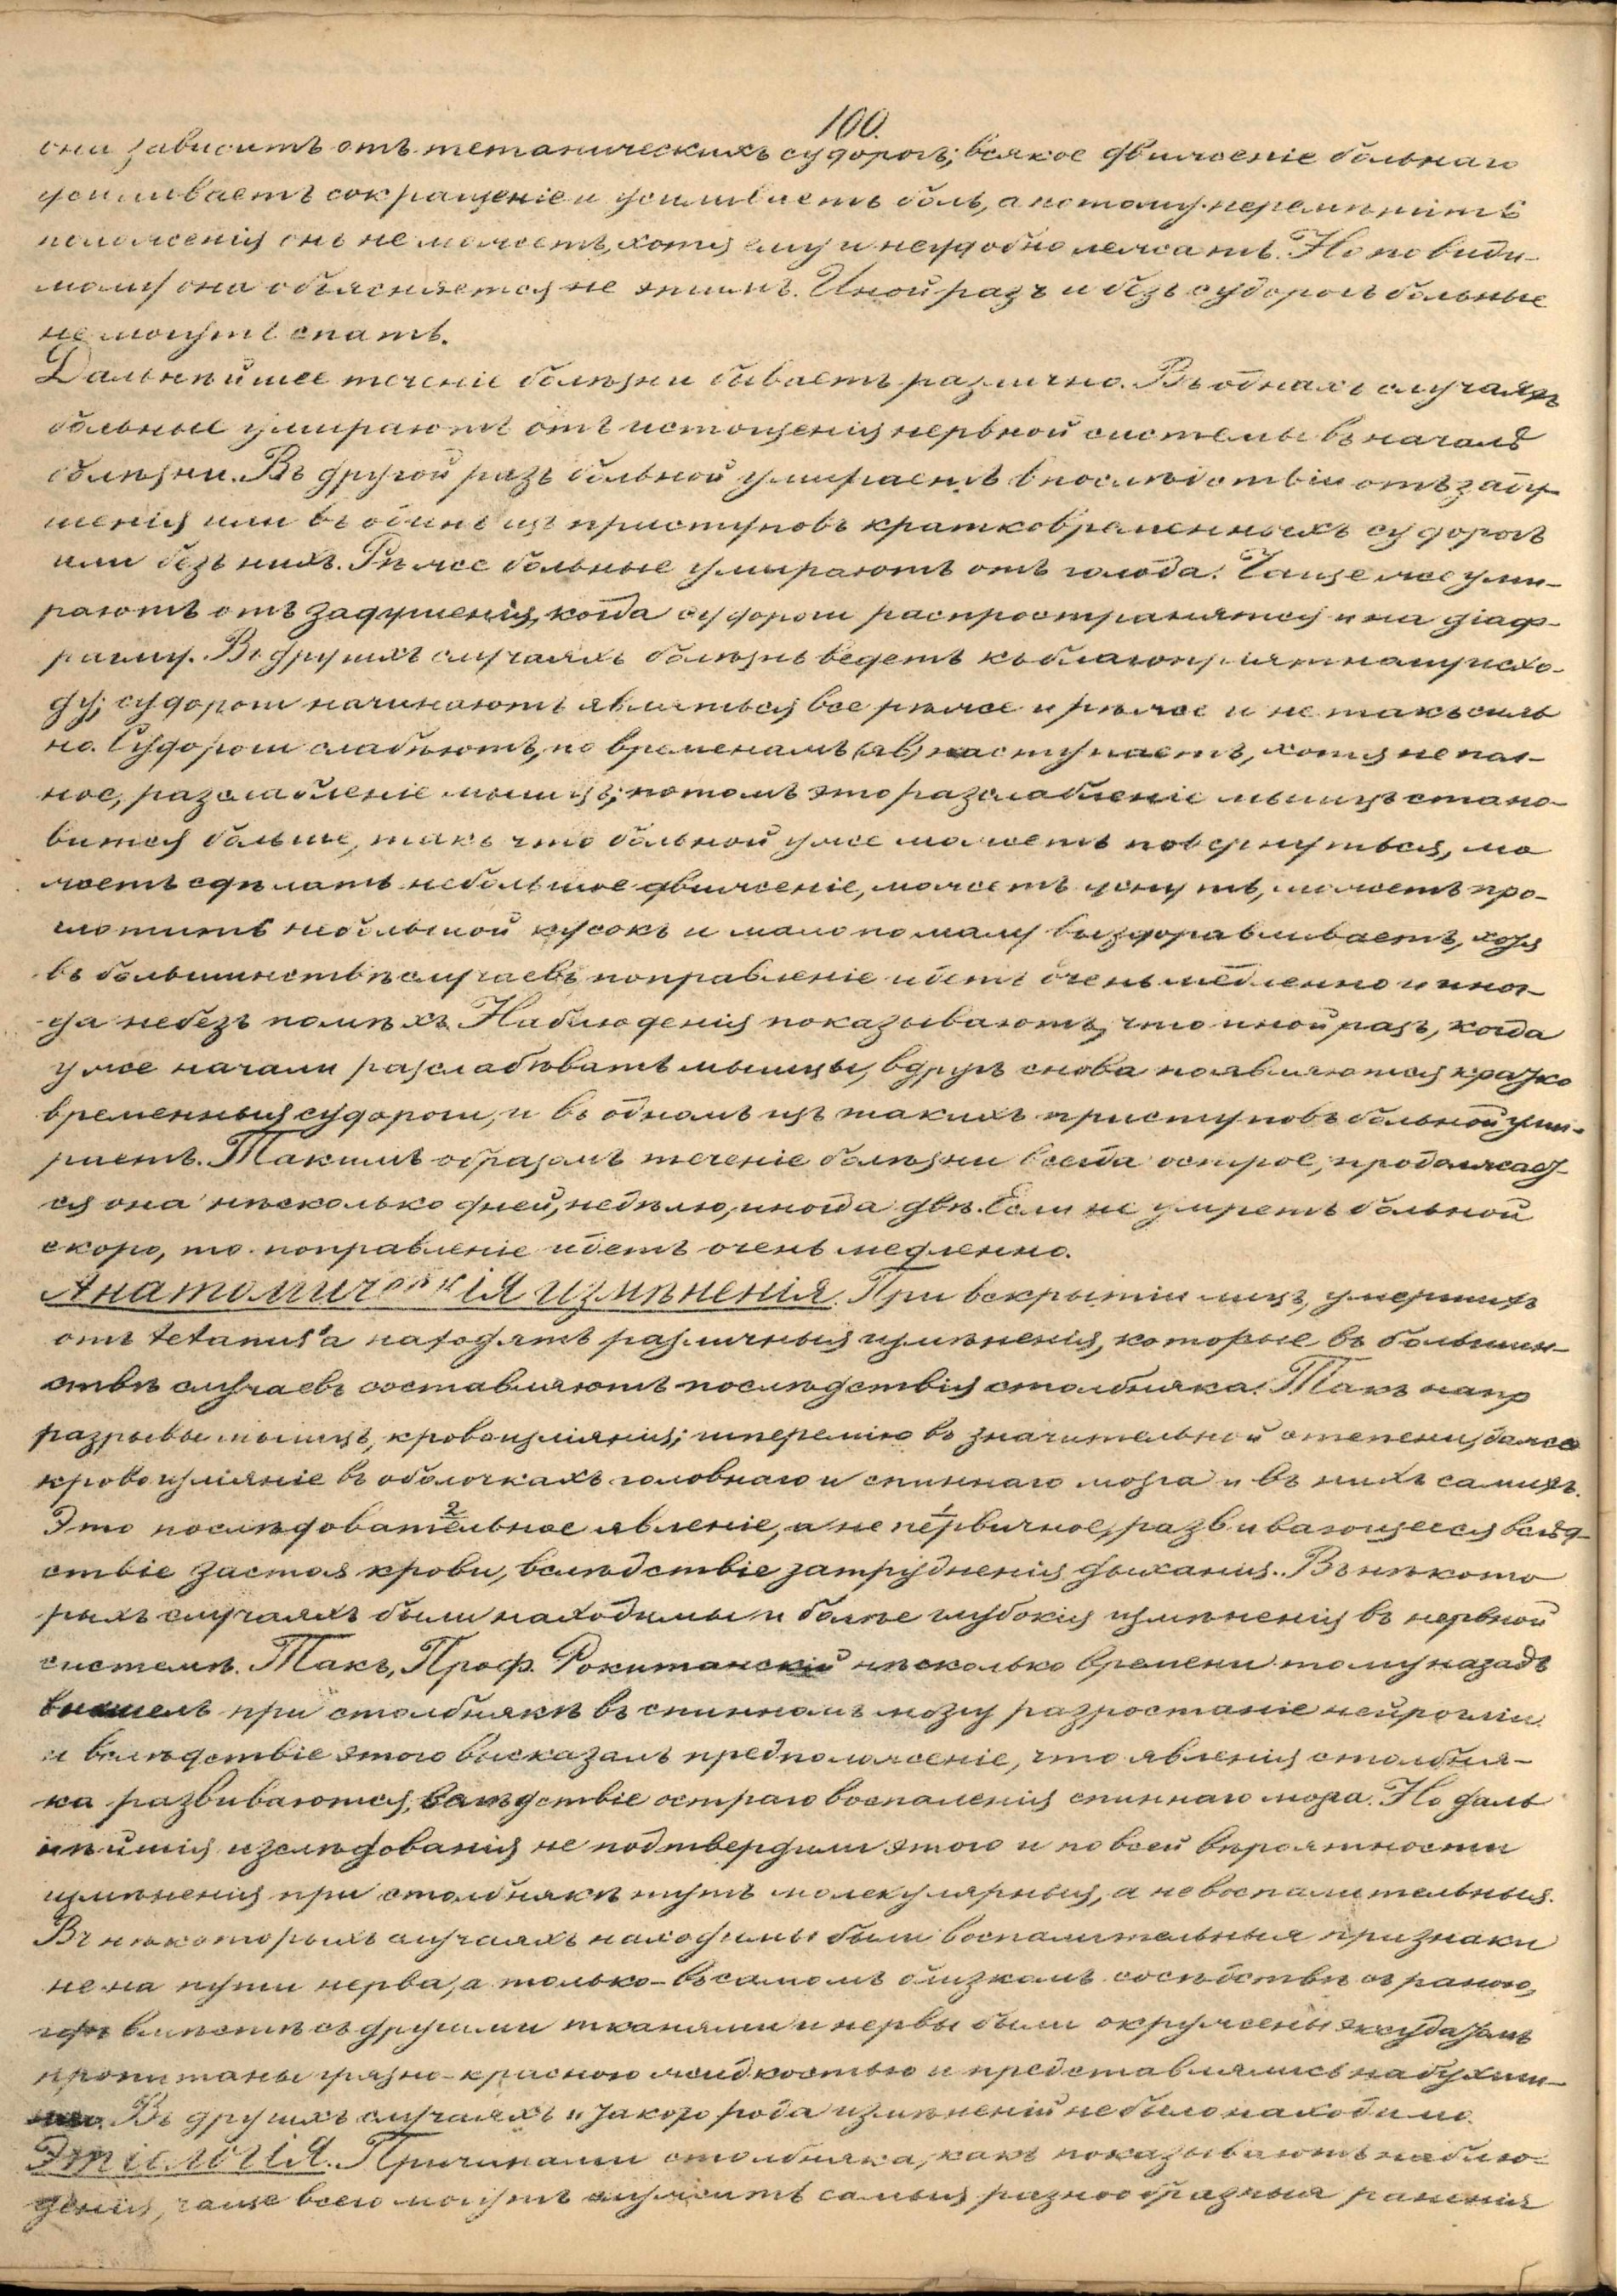 100.
она зависитъ отъ тетаническихъ судорогъ; всякое движеніе больнаго
усиливаетъ сокращеніе и усиливаетъ боль, а потому перемѣнить
положенія онъ не можетъ, хотя ему и неудобно лежать. Но по види-
мому она объясняется не этимъ. Иной разъ и безъ судорогъ больные
не могутъ спать.
Дальнѣйшее теченіе болѣзни бываетъ различно. Въ однихъ случаяхъ
больные умираютъ отъ истощенія нервной системы въ началѣ
болѣзни. Въ другой разъ больной умираетъ впослѣдствіи отъ заду-
шенія или въ одинъ изъ приступовъ кратковременныхъ судорогъ
или безъ нихъ. Рѣже больные умираютъ отъ голода. Чаще же уми-
раютъ отъ задушенія, когда судороги распространятся и на діаф-
рагму. Въ другихъ случаяхъ болѣзнь ведетъ къ благопріятному исхо-
ду; судороги начинаютъ являться все рѣже и рѣже и не такъ силь
но. Судороги слабѣютъ, по временамъ (яв) наступаетъ, хотя не пол-
ное, разслабленіе мышцъ; потомъ это разслабленіе мышцъ стано-
вится больше, такъ что больной уже можетъ повернуться, мо
жетъ сдѣлать небольшое движеніе, можетъ уснуть, можетъ про-
глотить небольшой кусокъ и мало по малу выздоравливаетъ, хотя
въ большинствѣ случаевъ поправленіе идетъ очень медленно и иног-
да небезъ помѣхъ. Наблюденія показываютъ, что иной разъ, когда
уже начали разслабѣвать мышцы, вдругъ снова появляются кратко
временныя судороги, и въ одномъ изъ такихъ приступовъ больной уми-
раетъ. Такимъ образомъ теченіе болѣзни всегда острое, продолжает-
ся она нѣсколько дней, недѣлю, иногда двѣ. Если не умретъ больной
скоро, то поправленіе идетъ очень медленно.
Анатомическія измѣненія. При вскрытіи лицъ, умершихъ
отъ tetanus'а находятъ различныя измѣненія, которые въ большин-
ствѣ случаевъ составляютъ послѣдствія столбняка. Такъ напр
разрывы мышцъ, кровоизліянія; гиперемію въ значительной степени, даже
кровоизліяніе въ оболочкахъ головнаго и спиннаго мозга и въ нихъ самихъ.
Это послѣдовательное 2 явленіе, а не первичное 1, развивающееся вслѣд-
ствіе застоя крови, вслѣдствіе затрудненія дыханія. Въ нѣкото
рыхъ случаяхъ были находимы и болѣе глубокія измѣненія въ нервной
системѣ. Такъ, Проф. Рокитанскій нѣсколько времени тому назадъ
нашелъ при столбнякѣ въ спинномъ мозгу разростаніе нейрогліи
и вслѣдствіе этого высказалъ предположеніе, что явленія столбня-
ка развиваются, вслѣдствіе остраго воспаленія спиннаго мозга. Но даль
нѣйшія изслѣдованія не подтвердили этого и по всей вѣроятности
измѣненія при столбнякѣ тутъ молекулярныя, а не воспалительныя.
Въ нѣкоторыхъ случаяхъ находимы были воспалительныя признаки
не на пути нерва, а только въ самомъ близкомъ сосѣдствѣ съ раною,
гдѣ вмѣстѣ съ другими тканями и нервы были окружены эксудатомъ
пропитаны грязно-красною жидкостью и представлялись набухши-
ми. Въ другихъ случаяхъ и такого рода измѣненій не было находимо.
Этіологія. Причинами столбняка, какъ показываютъ наблю-
денія, чаще всего могутъ служить самыя разнообразныя раненія